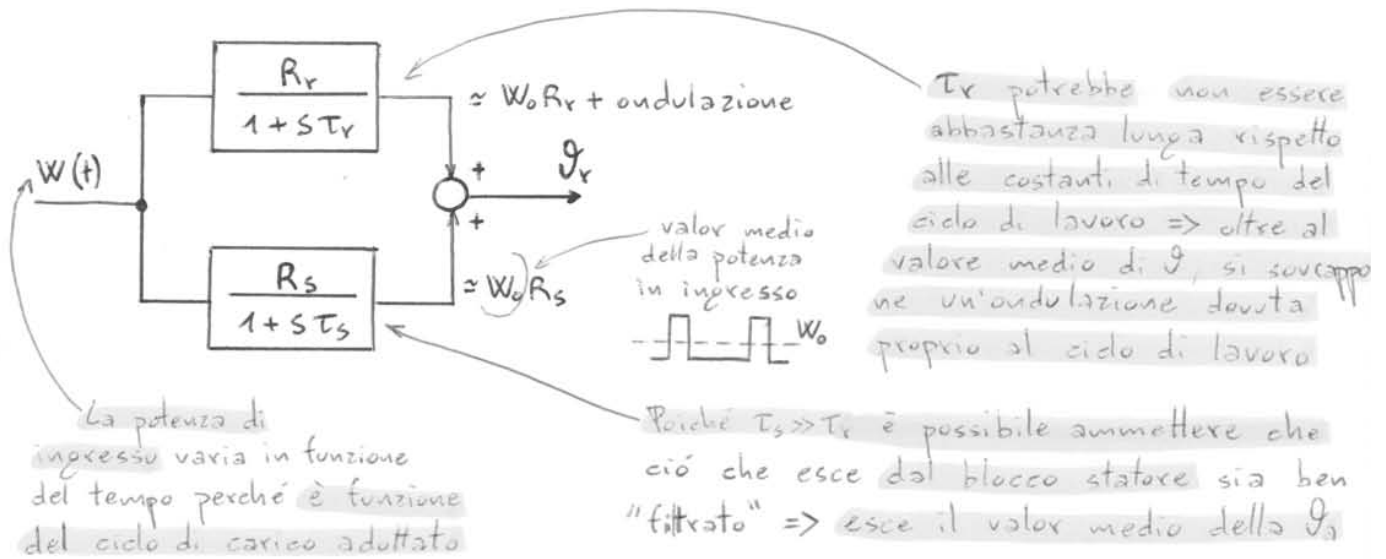 W(t)
R_r
1 + sτ_r
≃ W₀R_r + ondulazione
+
ϑ_r
+
R_s
1 + sτ_s
≃ W₀R_s
valor medio
della potenza
in ingresso
W₀
τ_r potrebbe non essere
abbastanza lunga rispetto
alle costanti di tempo del
ciclo di lavoro => oltre al
valore medio di ϑ, si sovrappo
ne un'ondulazione dovuta
proprio al ciclo di lavoro
La potenza di
ingresso varia in funzione
del tempo perché è funzione
del ciclo di carico adottato
Poiché τ_s >> τ_r è possibile ammettere che
ció che esce dal blocco statore sia ben
"filtrato" => esce il valor medio della ϑ